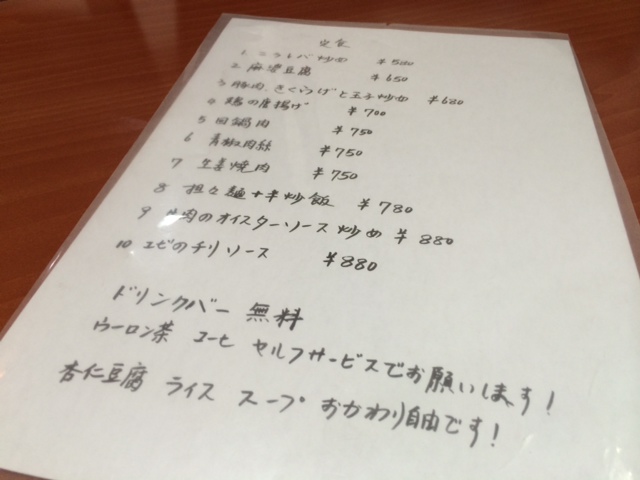 定食
1 ニラレバ炒め ¥580
2 麻婆豆腐 ¥650
3 豚肉、きくらげと玉子炒め ¥680
4 鶏の唐揚げ ¥700
5 回鍋肉 ¥750
6 青椒肉絲 ¥750
7 生姜焼肉 ¥750
8 担々麺+半炒飯 ¥780
9 牛肉のオイスターソース炒め ¥880
10 エビのチリソース ¥880
ドリンクバー 無料
ウーロン茶 コーヒ セルフサービスでお願いします!
杏仁豆腐 ライス スープ おかわり自由です!